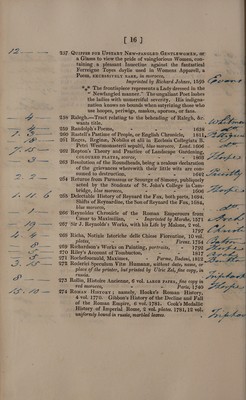 [ 16 ]
257 Quippes for Upstart New-fangled Gentlewomen, or
a Glasse to view the pride of vainglorious Women, con-
taining a pleasant Invective against the fantastical
Forreigne Toyes daylie used in Women's Apparell, a
Poem, excessively rare, in morocco,
Imprinted by Richard Johnes, 1595
*** The frontispiece represents a Lady dressed in the
" Newfangled manner." The ungallant Poet lashes
the ladies with unmerciful severity. His indigna-
tation knows no bounds when satyrising those who
use hoopes, periwigs, maskes, aporons, or fans.
258 Ralegh.—Tract relating to the beheading of Ralegh, &c.
wants title.
259 Randolph's Poems, 1638
260 Rastell's Pastime of People, or English Chronicle, 1811
261 Reges, Regina, Nobiles et alii in Ecclesia Collegiata B.
Petri Westmonasterii sepulti, blue morocco, Lond. 1606
262 Repton's Theory and Practice of Landscape Gardening,
coloured plates, scarce, 1803
263 Resolution of the Roundheads, being a zealous declaration
of the grievances wherewith their little wits are con-
sumed to destruction, 1641
264 Returne from Parnassus or Scourge of Simony, publiquely
acted by the Students of St. John's College in Cam-
bridge, blue morocco, 1606
265 Delectable History of Reynard the Fox, both parts, 1684.
Shifts of Reynardine, the Son of Reynard the Fox, 1684,
blue morocco,
266 Reynoldes Chronicle of the Roman Emperours from
Cæsar to Maximilian, Imprinted by Marshe, 1571
267 Sir J. Reynolds's Works, with his Life by Malone, 2 vol.
1797
268 Richa, Notizie Istoriche delle Chiese Fiorentine, 10 vol.
plates, Firenz. 1754
269 Richardson's Works on Painting, portraits, 1792
270 Riley's Account of Toothacker, 1817
271 Rochefoucauld, Maximes, Parma, Bodoni, 1812
272 Roderici Speculum Vitæ Humanæ, without date, name, or
place of the printer, but printed by Ulric Zel, fine copy, in
russia.
273 Rollin, Histoire Ancienne, 6 vol. large paper, fine copy in
red morocco, Paris, 1740
274 Roman History; namely, Hooke's Roman History,
4 vol. 1770. Gibbon's History of the Decline and Fall
of the Roman Empire, 6 vol. 1781. Cook's Medallic
History of Imperial Rome, 2 vol. plates, 1781, 12 vol.
uniformly bound in russia, marbled leaves.